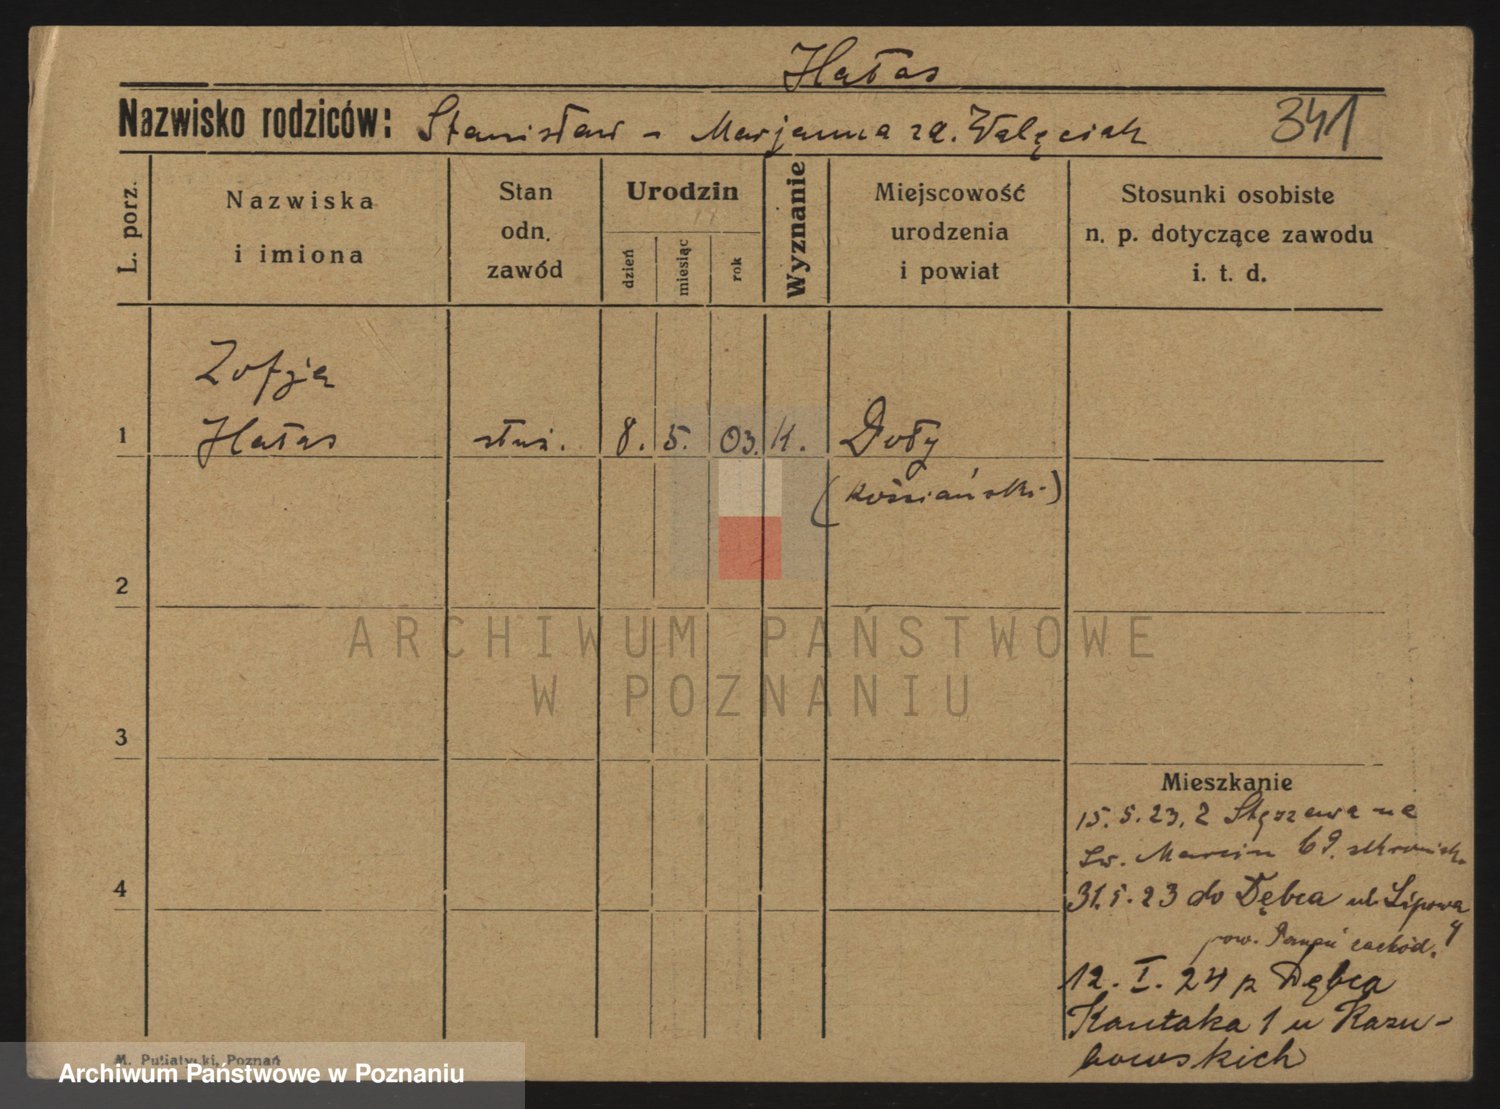 Hałas
Nazwisko rodziców: Stanisław - Marjanna za. Walęciak 341
L. porz.
Nazwiska
i imiona
Stan
odn.
zawód
Urodzin
dzień
miesiąc
rok
Wyznanie
Miejscowość
urodzenia
i powiat
Stosunki osobiste
n. p. dotyczące zawodu
i. t. d.
Zofja
1 Hałas służ. 8. 5. 03. K. Doły
(kościański)
2
ARCHIWUM PAŃSTWOWE
W POZNANIU
3
Mieszkanie
15. 5. 23. z Stęszewa na
Św. Marcin 69.
4
31. 5. 23 do Dębca ul. Lipowa
4
pow. Poznań zachód.
12. I. 24 z Dębca
Kantaka 1 u Kazu-
bowskich
M. Putiatycki, Poznań
Archiwum Państwowe w Poznaniu